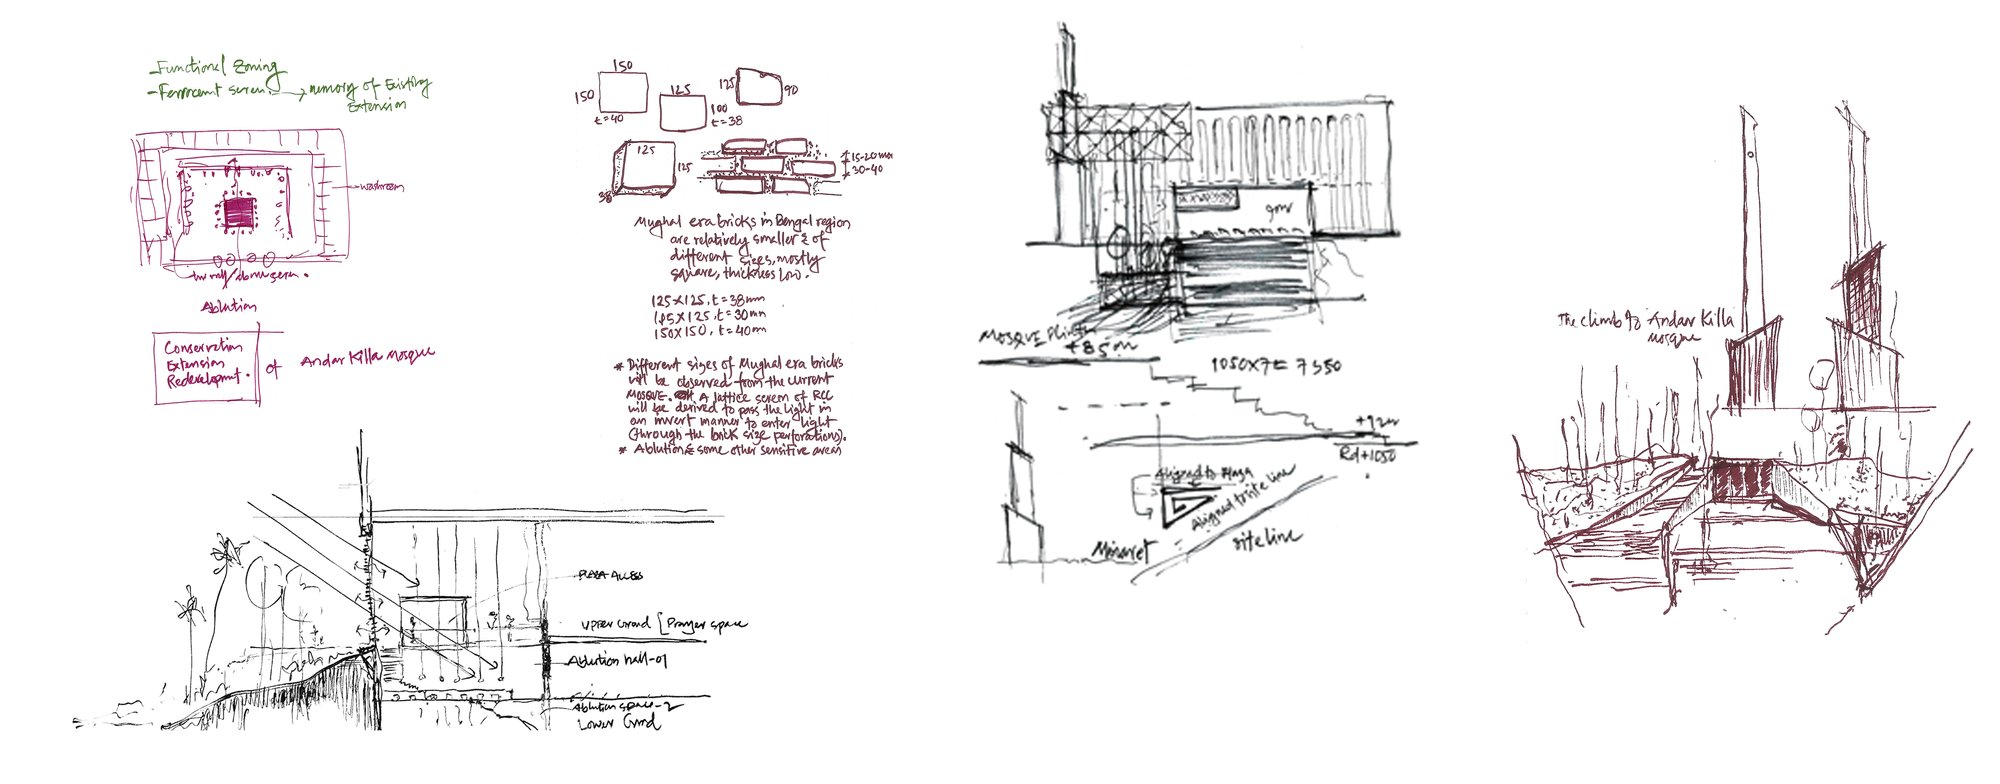 -Functional Zoning
-Ferrocement screen. → memory of Existing
Extension
washroom
Ablution
Conservation
Extension
Redevelopment.
of Andar Killa Mosque
150
150
t=40
125
100
t=38
125
90
125
125
38
15-20mm
30-40
Mughal era bricks in Bengal region
are relatively smaller & of
different sizes, mostly
square, thickness low.
125X125, t=38mm
125, t=30mm
150X150, t=40mm
* Different sizes of Mughal era bricks
will be observed from the current
MOSQUE. A lattice screen of RCC
will be derived to pass the light in
an invert manner to enter light
(through the brick size perforations).
* Ablution & some other sensitive areas
PLAZA ACCESS
Upper Grond [Prayer space
Ablution hall-01
Ablution space-2
Lower Grnd
MOSQUE Plinth
+85m
1050x7=7350
+92m
Rd+1050
Aligned to Plaza
Aligned to site line
site line
Minaret
The climb to Andar Killa
Mosque